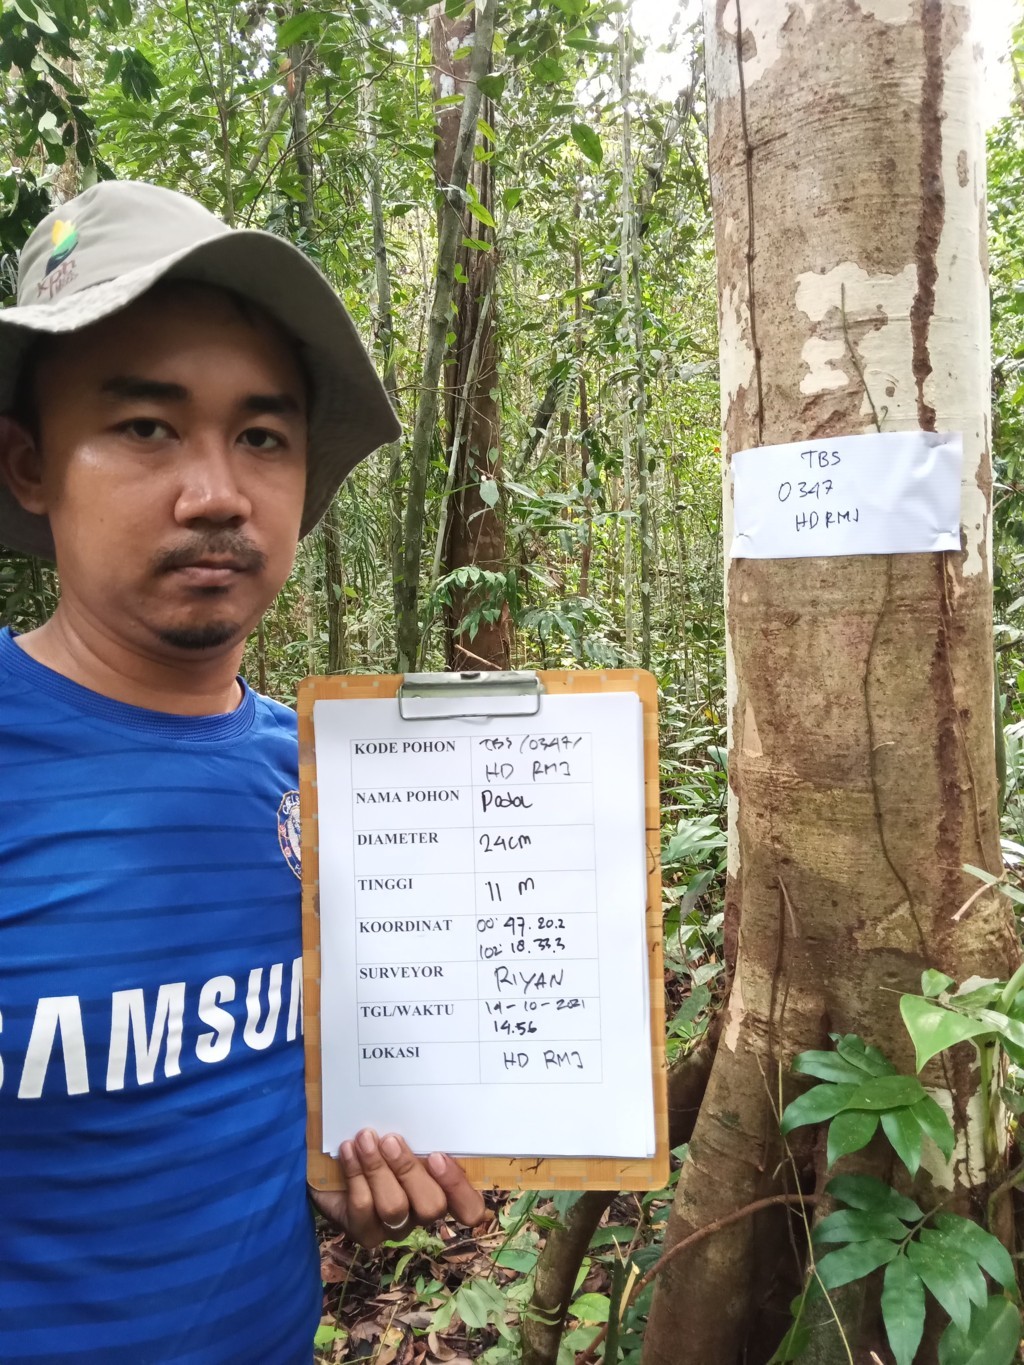 kph
TBS
0347
HD RMJ
KODE POHON TBS/0347/
HD RMJ
NAMA POHON Pada
DIAMETER 24cm
TINGGI 11 M
KOORDINAT 00° 47. 20.2
102° 18. 33.3
SURVEYOR RIYAN
TGL/WAKTU 14-10-2021
14.56
LOKASI HD RMJ
SAMSUN